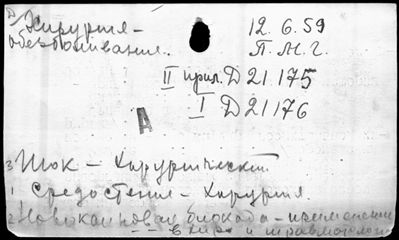 Хирургия –
обезболивание.
12.6.59
П.М.Г.
II прил. Д 21.175
I Д 21176
А
3 Шок – Хирургический
1 Средостения – Хирургия.
2 Новокаиновая блокада – применение
– – в хир. и травматолог